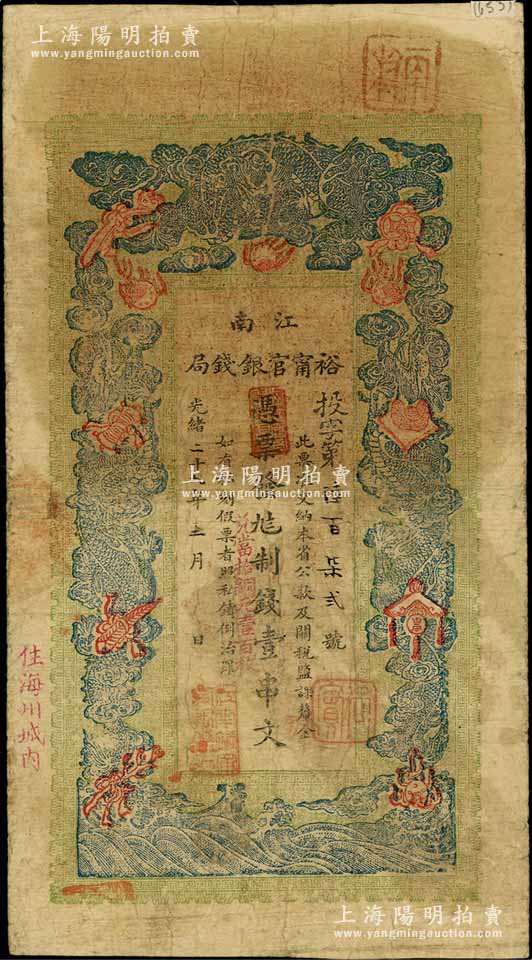 上海陽明拍賣
www.yangmingauction.com
江南
裕甯官銀錢局
投字第 百柒貳號
此票 納本省公款及關稅鹽課釐金
憑票 制錢壹串文
兌當拾銅元壹百枚
如有 假票者照私鑄例治罪
光緒二十 年 月 日
住海州城內
上海陽明拍賣
www.yangmingauction.com
上海陽明拍賣
www.yangmingauction.com
上海陽明拍賣
www.yangmingauction.com